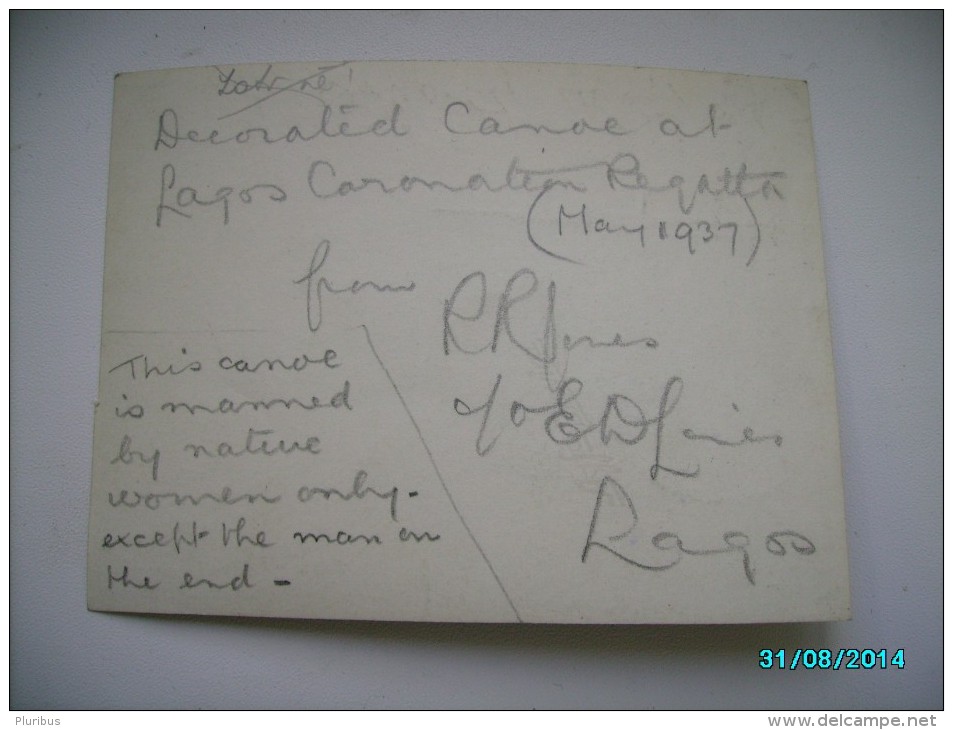 Decorated Canoe at
Lagos Coronation Regatta
(May 1937)
from
R R Jones
c/o E D Lines
Lagos
This canoe
is manned
by native
women only -
except the man on
the end -
31/08/2014
Pluribus
www.delcampe.net